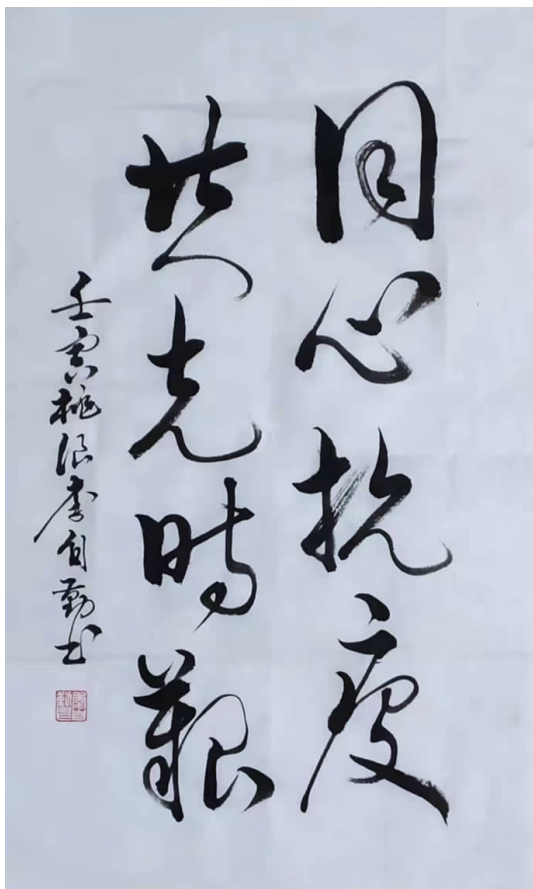 同心抗疫
共克時艱
壬寅桃浪李自勤书